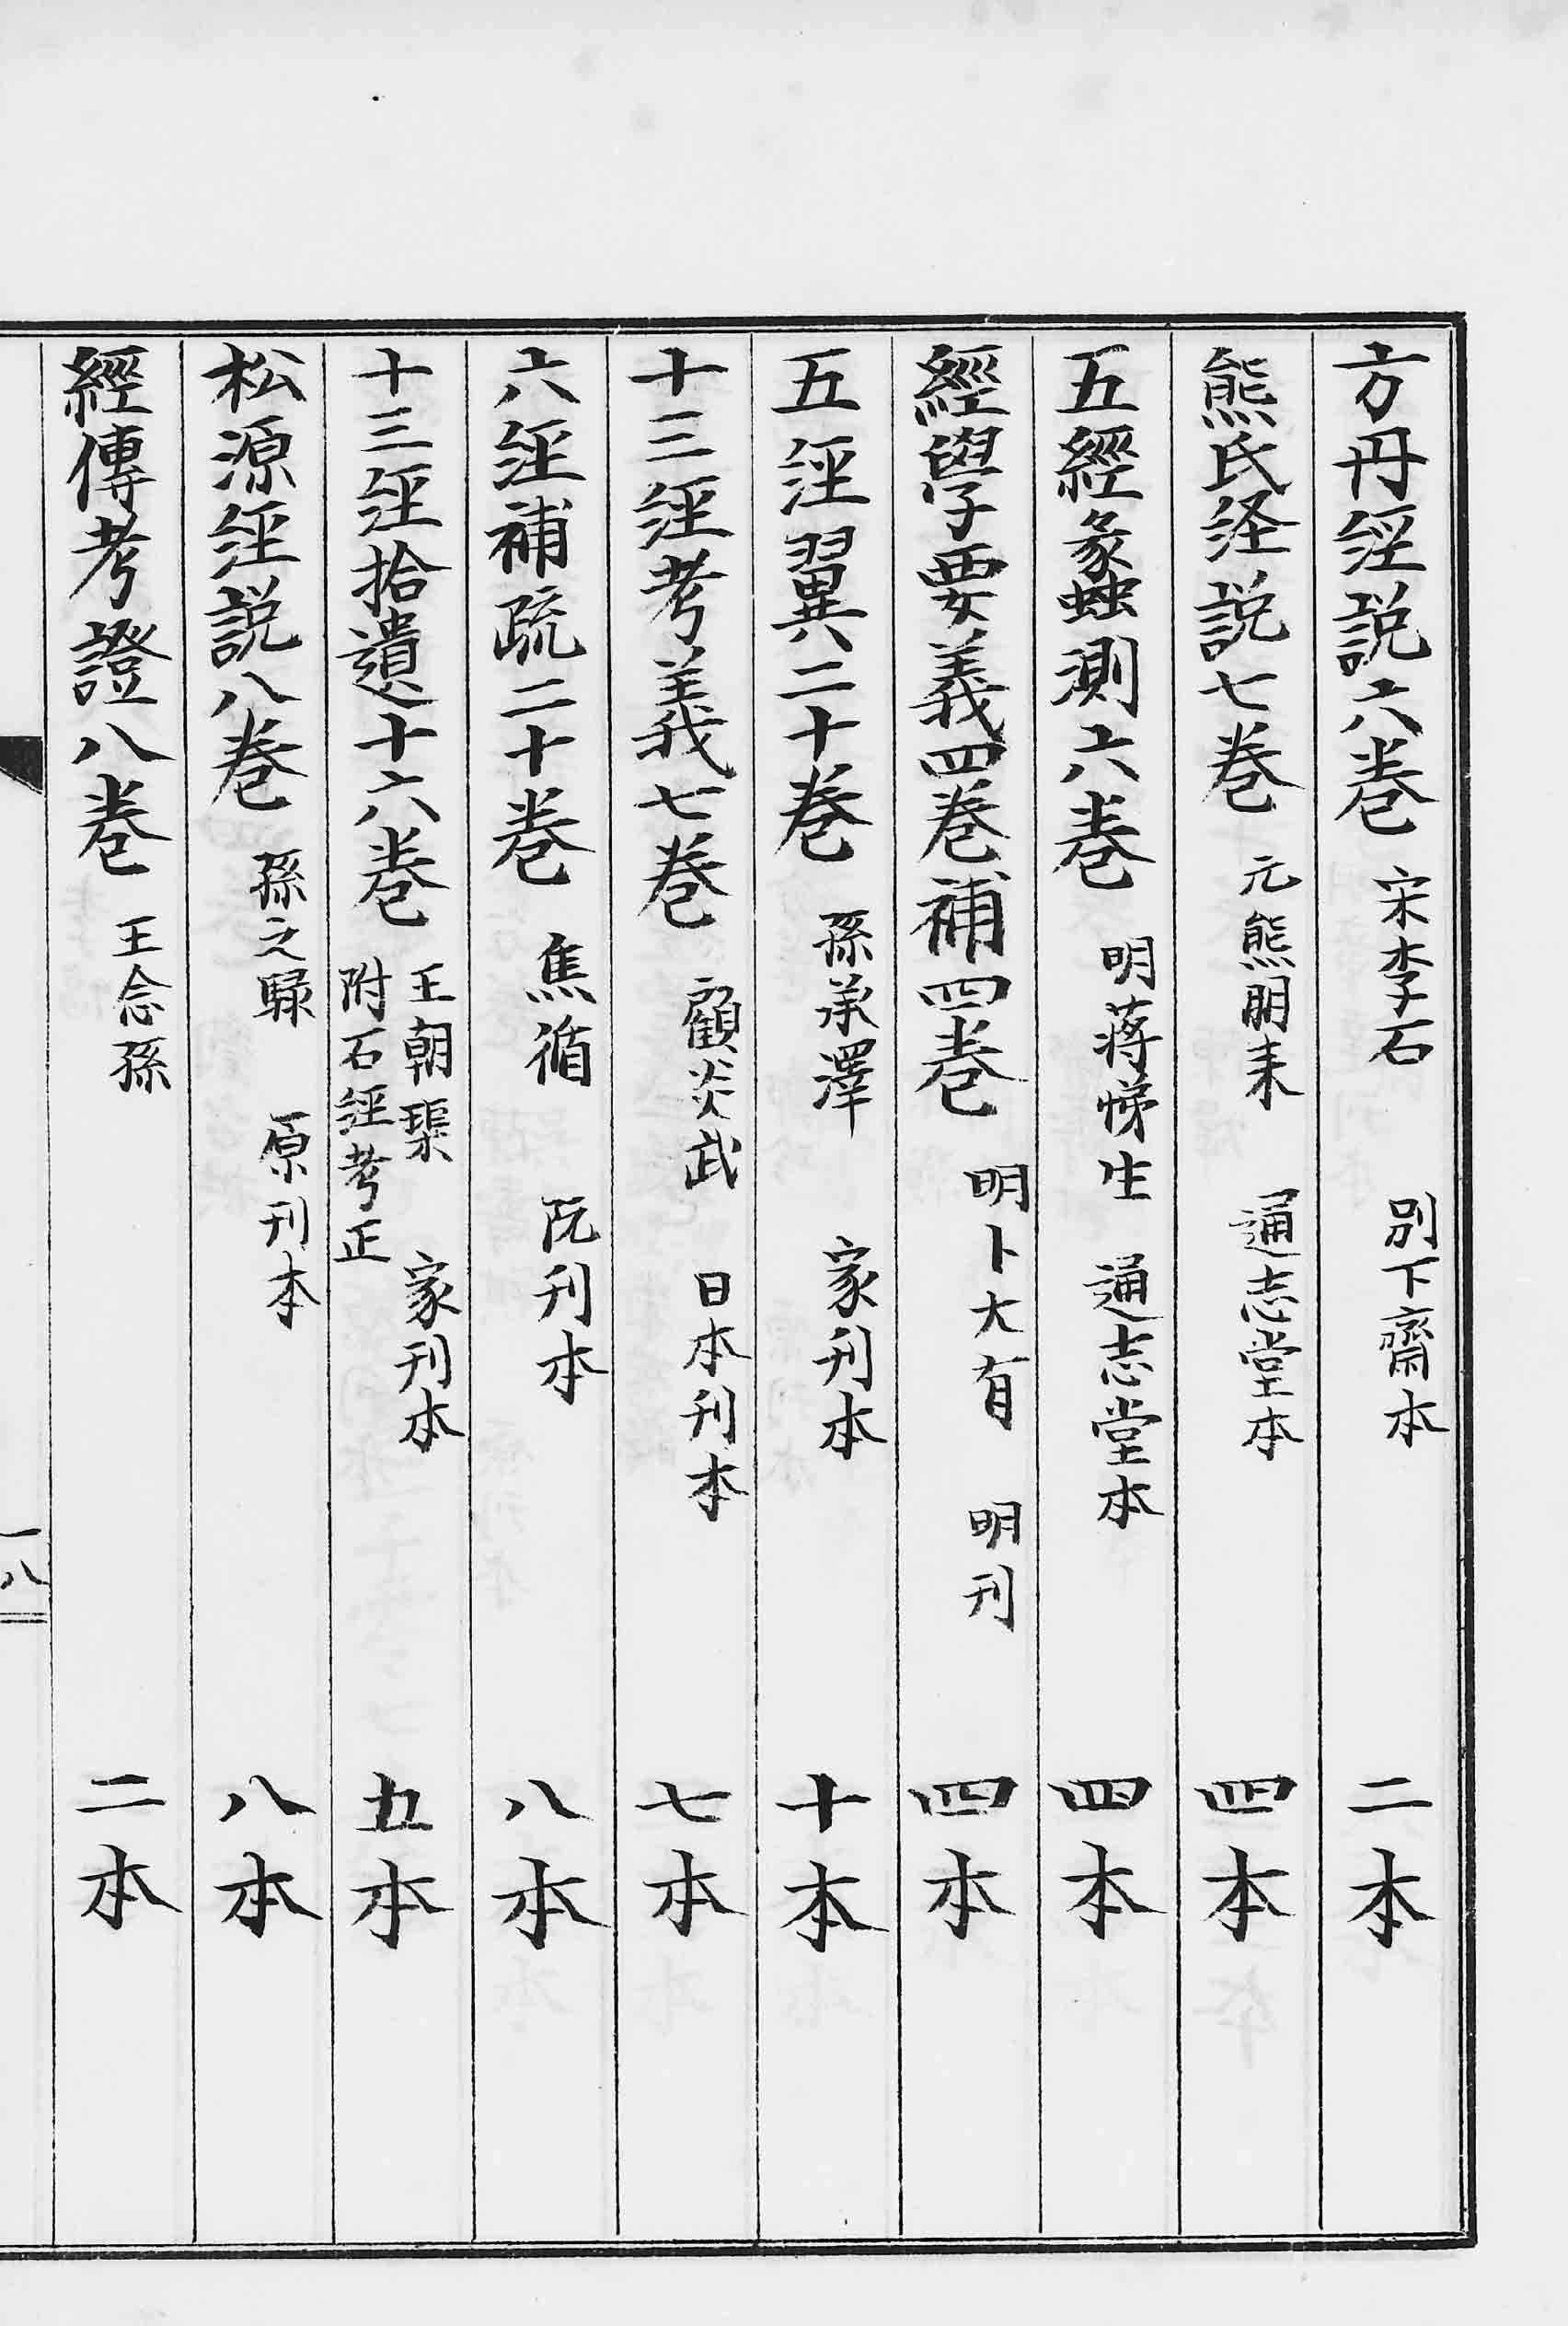 方丹經説六卷 宋李石 別下齋本 二本
熊氏经説七卷 元熊朋耒 通志堂本 四本
五經蠡測六卷 明蒋悌生 通志堂本 四本
經學要義四卷補四卷 明卜大有 明刊 四本
五經翼二十卷 孫承澤 家刊本 十本
十三經考義七卷 顧炎武 日本刊本 七本
六經補疏二十卷 焦循 阮刊本 八本
十三經拾遺十六卷 王朝榘 附石經考正 家刊本 五本
松源經説八卷 孫之騄 原刊本 八本
經傳考證八卷 王念孫 二本
一八